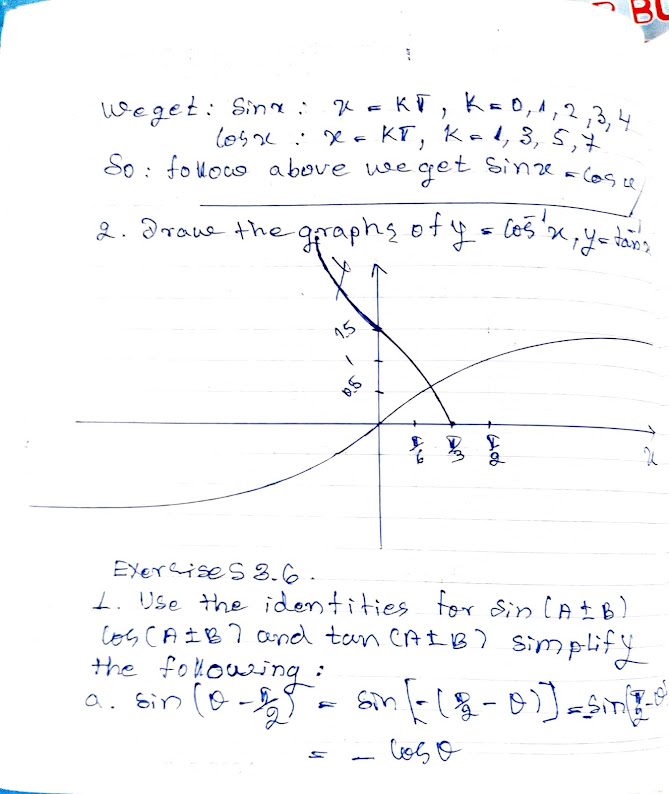 BU
Weget: Sinx: x = Kπ, K=0,1,2,3,4
Cosx: x = Kπ, K=1,3,5,7
So: follow above we get Sinx = Cosx
2. Draw the graphs of y = Cos⁻¹x, y=tan⁻¹x
y
1.5
1
0.5
π/6 π/3 π/2
x
Exercises 3.6.
1. Use the identities for Sin(A±B)
Cos(A±B) and tan(A±B) simplify
the following:
a. Sin(θ-π/2) = Sin[-(π/2-θ)] = -Sin(π/2-θ
= - Cosθ